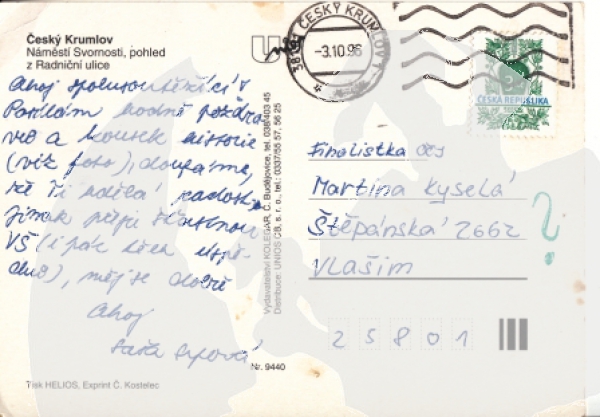 Český Krumlov
Náměstí Svornosti, pohled
z Radniční ulice
Ahoj spolusoutěžící!
Posílám hodně pozdra
vů a kousek historie
(viz foto), doufáme,
že Ti udělá radost.
Jinak přeji šťastnou
VŠ (i pár těch úspě
chů), měj se dobře
Ahoj
Vydavatelství KOLEGAR, Č. Budějovice, tel. 038/403 45
Distribuce: UNIOS CB, s. r. o., tel.: 0337/55 57, 56 25
Nr. 9440
Tisk HELIOS, Exprint Č. Kostelec
ČESKÝ KRUMLOV 1
381
-3.10.96
ČESKÁ REPUBLIKA
Finalistka
Martina Kyselá
Štěpánská 2662
Vlašim
?
25801